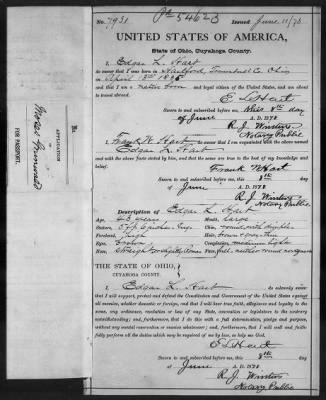 No. 7931 Issued June 11/78
UNITED STATES OF AMERICA,
State of Ohio, Cuyahoga County.
I Edgar L. Hart
do swear that I was born in Hartford, Trumbull Co. Ohio
on April 1835
and that I am a native born and loyal citizen of the United States, and about
to travel abroad.
E L Hart
Sworn to and subscribed before me, this 8th day
of June A. D. 1878
R. J. Winslow
Notary Public
I Frank W Hart do swear that I am acquainted with the above named
Edgar L. Hart and
with the above facts stated by him, that the same are true to the best of my knowledge and
belief.
Frank W Hart
Sworn to and subscribed before me, this 8th day
of June A. D. 1878
R. J. Winslow
Notary Public
Description of Edgar L. Hart
Age, 43 years
Mouth, large
Stature, Eng.
Chin,
Forehead, high
Hair,
Eyes,
Complexion,
Nose, Face,
THE STATE OF OHIO,
CUYAHOGA COUNTY.
I Edgar L. Hart do solemnly swear
that I will support, protect and defend the Constitution and Government of the United States against
all enemies, whether domestic or foreign, and that I will bear true faith, allegiance and loyalty to the
same, any ordinance, resolution or law of any State, convention or legislature to the contrary
notwithstanding; and further, that I do this with a full determination, pledge and purpose,
without any mental reservation or evasion whatsoever; and further, that I will well and faithfully
perform all the duties which may be required of me by law, so help me God.
E L Hart
Sworn to and subscribed before me, this 8th day
of June A. D. 1878
R. J. Winslow
Notary Public
APPLICATION
FOR PASSPORT.